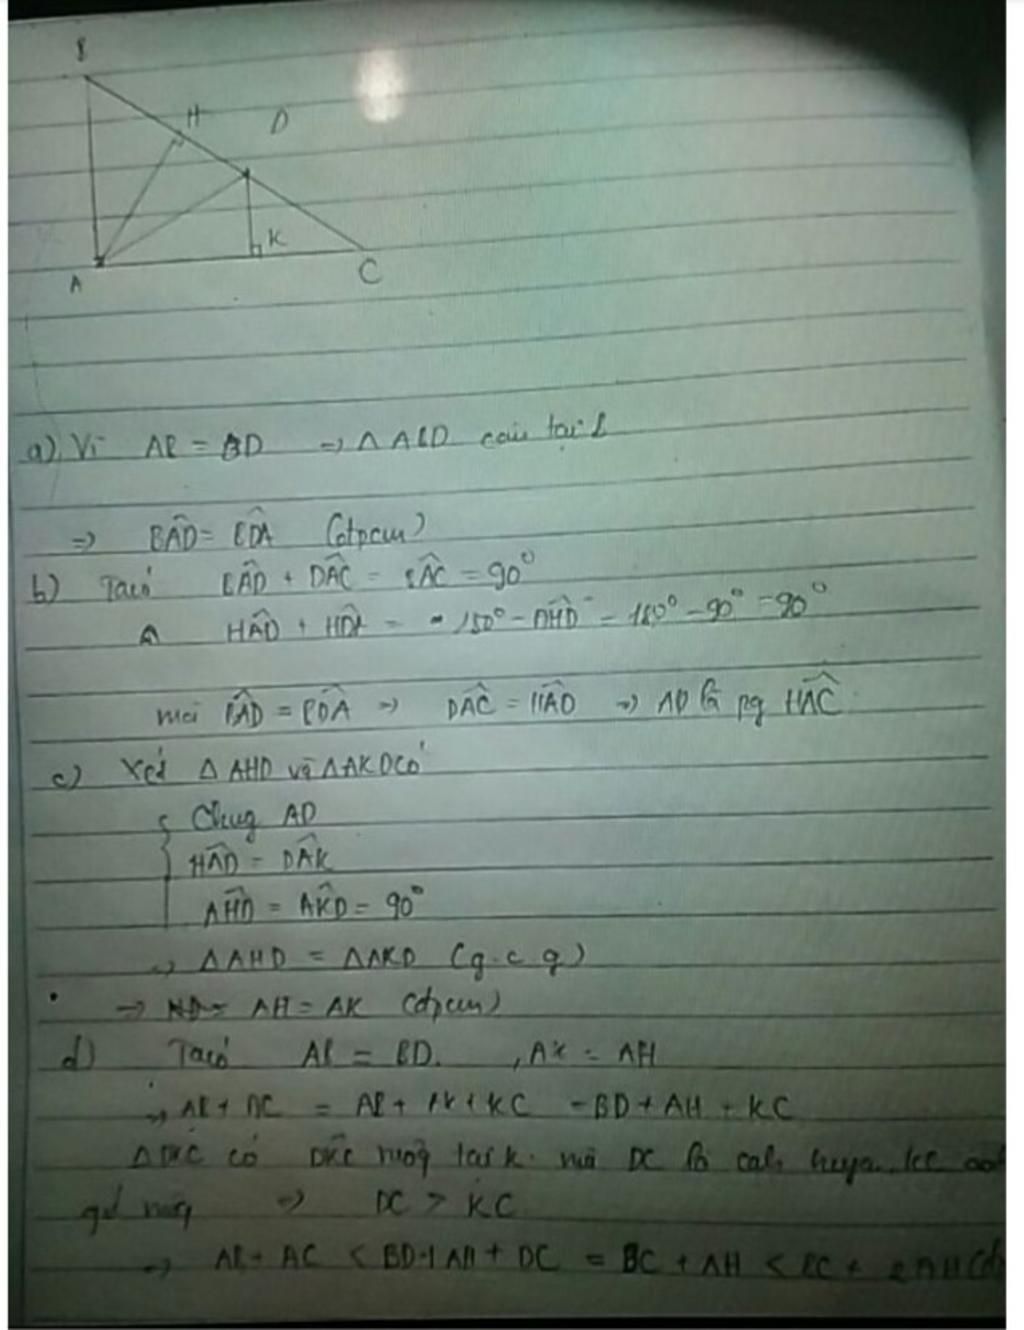 B
H
D
K
A
C
a) Vì AB = BD => △ ABD cân tại B
=> BÂD = BD̂A (đpcm)
b) Ta có BÂD + DÂC = BÂC = 90°
HÂD + HD̂A = 180° - AĤD = 180° - 90° = 90°
mà BÂD = BD̂A => DÂC = HÂD => AD là pg HÂC
c) Xét △ AHD và △AKD có
Chug AD
HÂD = DÂK
AĤD = AK̂D = 90°
=> △AHD = △AKD (g.c.g)
=> AH = AK (đpcm)
d) Ta có AB = BD. , AK = AH
=> AB + AC = AB + AK + KC = BD + AH + KC
△DKC có vuông tại K mà DC là cạh huyền, KC
góc vuông => DC > KC
=> AB + AC < BD + AH + DC = BC + AH < BC + 2AH